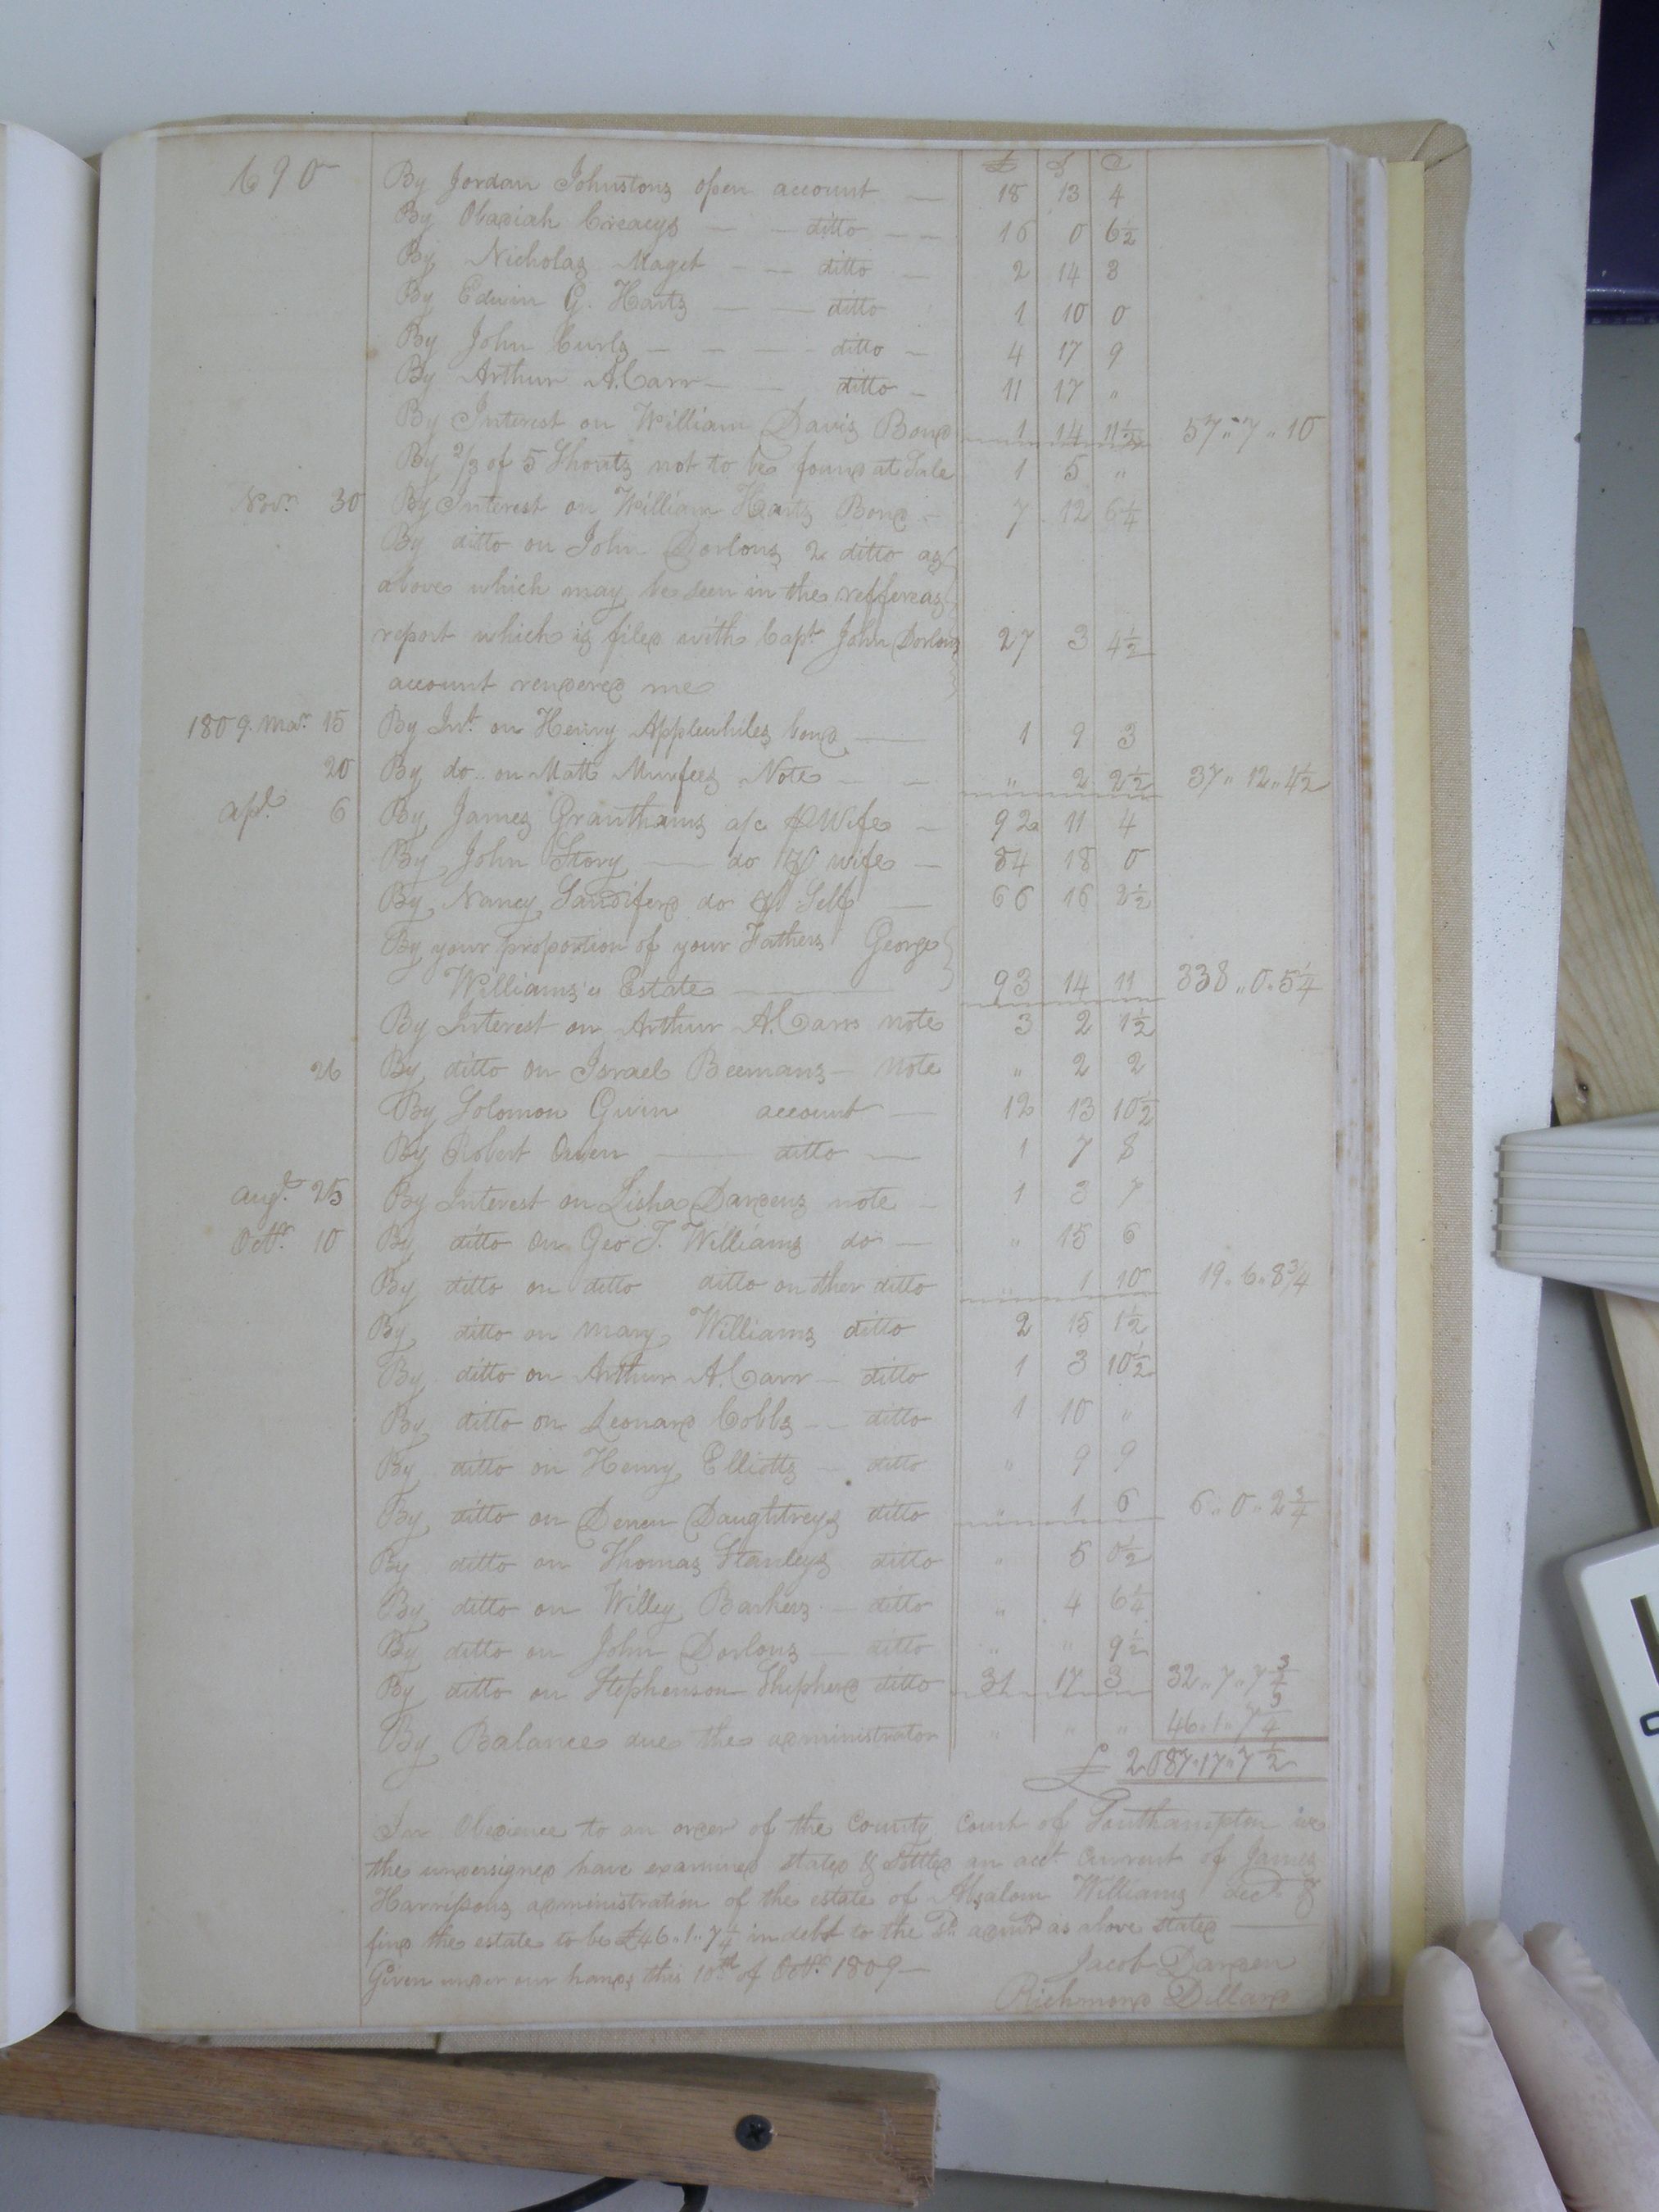 690
£ S D
By Jordan Johnstons open account — 18 13 4
By Obadiah Creacys — — ditto — — 16 0 6½
By Nicholas Maget — — ditto — 2 14 3
By Edwin G. Harts — — ditto 1 10 0
By John Curls — — — ditto — 4 17 9
By Arthur A. Carr — — ditto — 11 17 "
By Interest on William Davis Bond 1 14 11½ 57 " 7 " 10
By ⅔ of 5 Shoats not to be found at Sale 1 5 "
Novr. 30 By Interest on William Harts Bond — 7 12 6¼
By ditto on John Dorlons 2 ditto as
above which may be seen in the reffereas
report which is filed with Capt John Dorlons 27 3 4½
account rendered me
1809. Mar. 15 By Int. on Henry Applewhites bond — 1 9 3
20 By do.. on Matt Murfees Note — — " 2 2½ 37 " 12 " 4½
apl. 6 By James Granthams a/c Wife — 92 11 4
By John Story — do wife — 84 18 0
By Nancy Sandiferd do Self — 66 16 2½
By your proportion of your Fathers George
Williams's Estate — 93 14 11 338 " 0 " 5¼
By Interest on Arthur A. Carrs note 3 2 1½
26 By ditto on Israel Beemans — note " 2 2
By Solomon Gwin account — 12 13 10½
By Robert Owen — ditto — 1 7 8
augt. 25 By Interest on Lisha Dardens note — 1 3 7
Octr. 10 By ditto on Geo T. Williams do — " 15 6
By ditto on ditto ditto on ther ditto " 1 10 19 " 6 " 8¾
By ditto on Mary Williams ditto 2 15 1½
By ditto on Arthur A. Carr — ditto 1 3 10½
By ditto on Leonard Cobbs — ditto 1 10 "
By ditto on Henry Elliotts — ditto " 9 9
By ditto on Daughtreys ditto " 1 6 6 " 0 " 2¾
By ditto on Thomas Stanleys ditto " 5 0½
By ditto on Willey Barkers — ditto " 4 6¼
By ditto on John Dorlons — ditto " " 9½
By ditto on Stephenson Shepherd ditto 31 17 3 32 " 7 " 7¾
By Balance due the administrator " " " 46 " 1 " 7¾
£ 2087 " 17 " 7½
In Obedience to an order of the County Court of Southampton we
the undersigned have examined stated & Settled an acct Current of James
Harrissons administration of the estate of Absalom Williams Decd. &
find the estate to be £46 " 1 " 7¼ in debt to the Sd. admr as above stated —
Given under our hands this 10th of Octr. 1809 —
Jacob Darden
Richmond Dillard